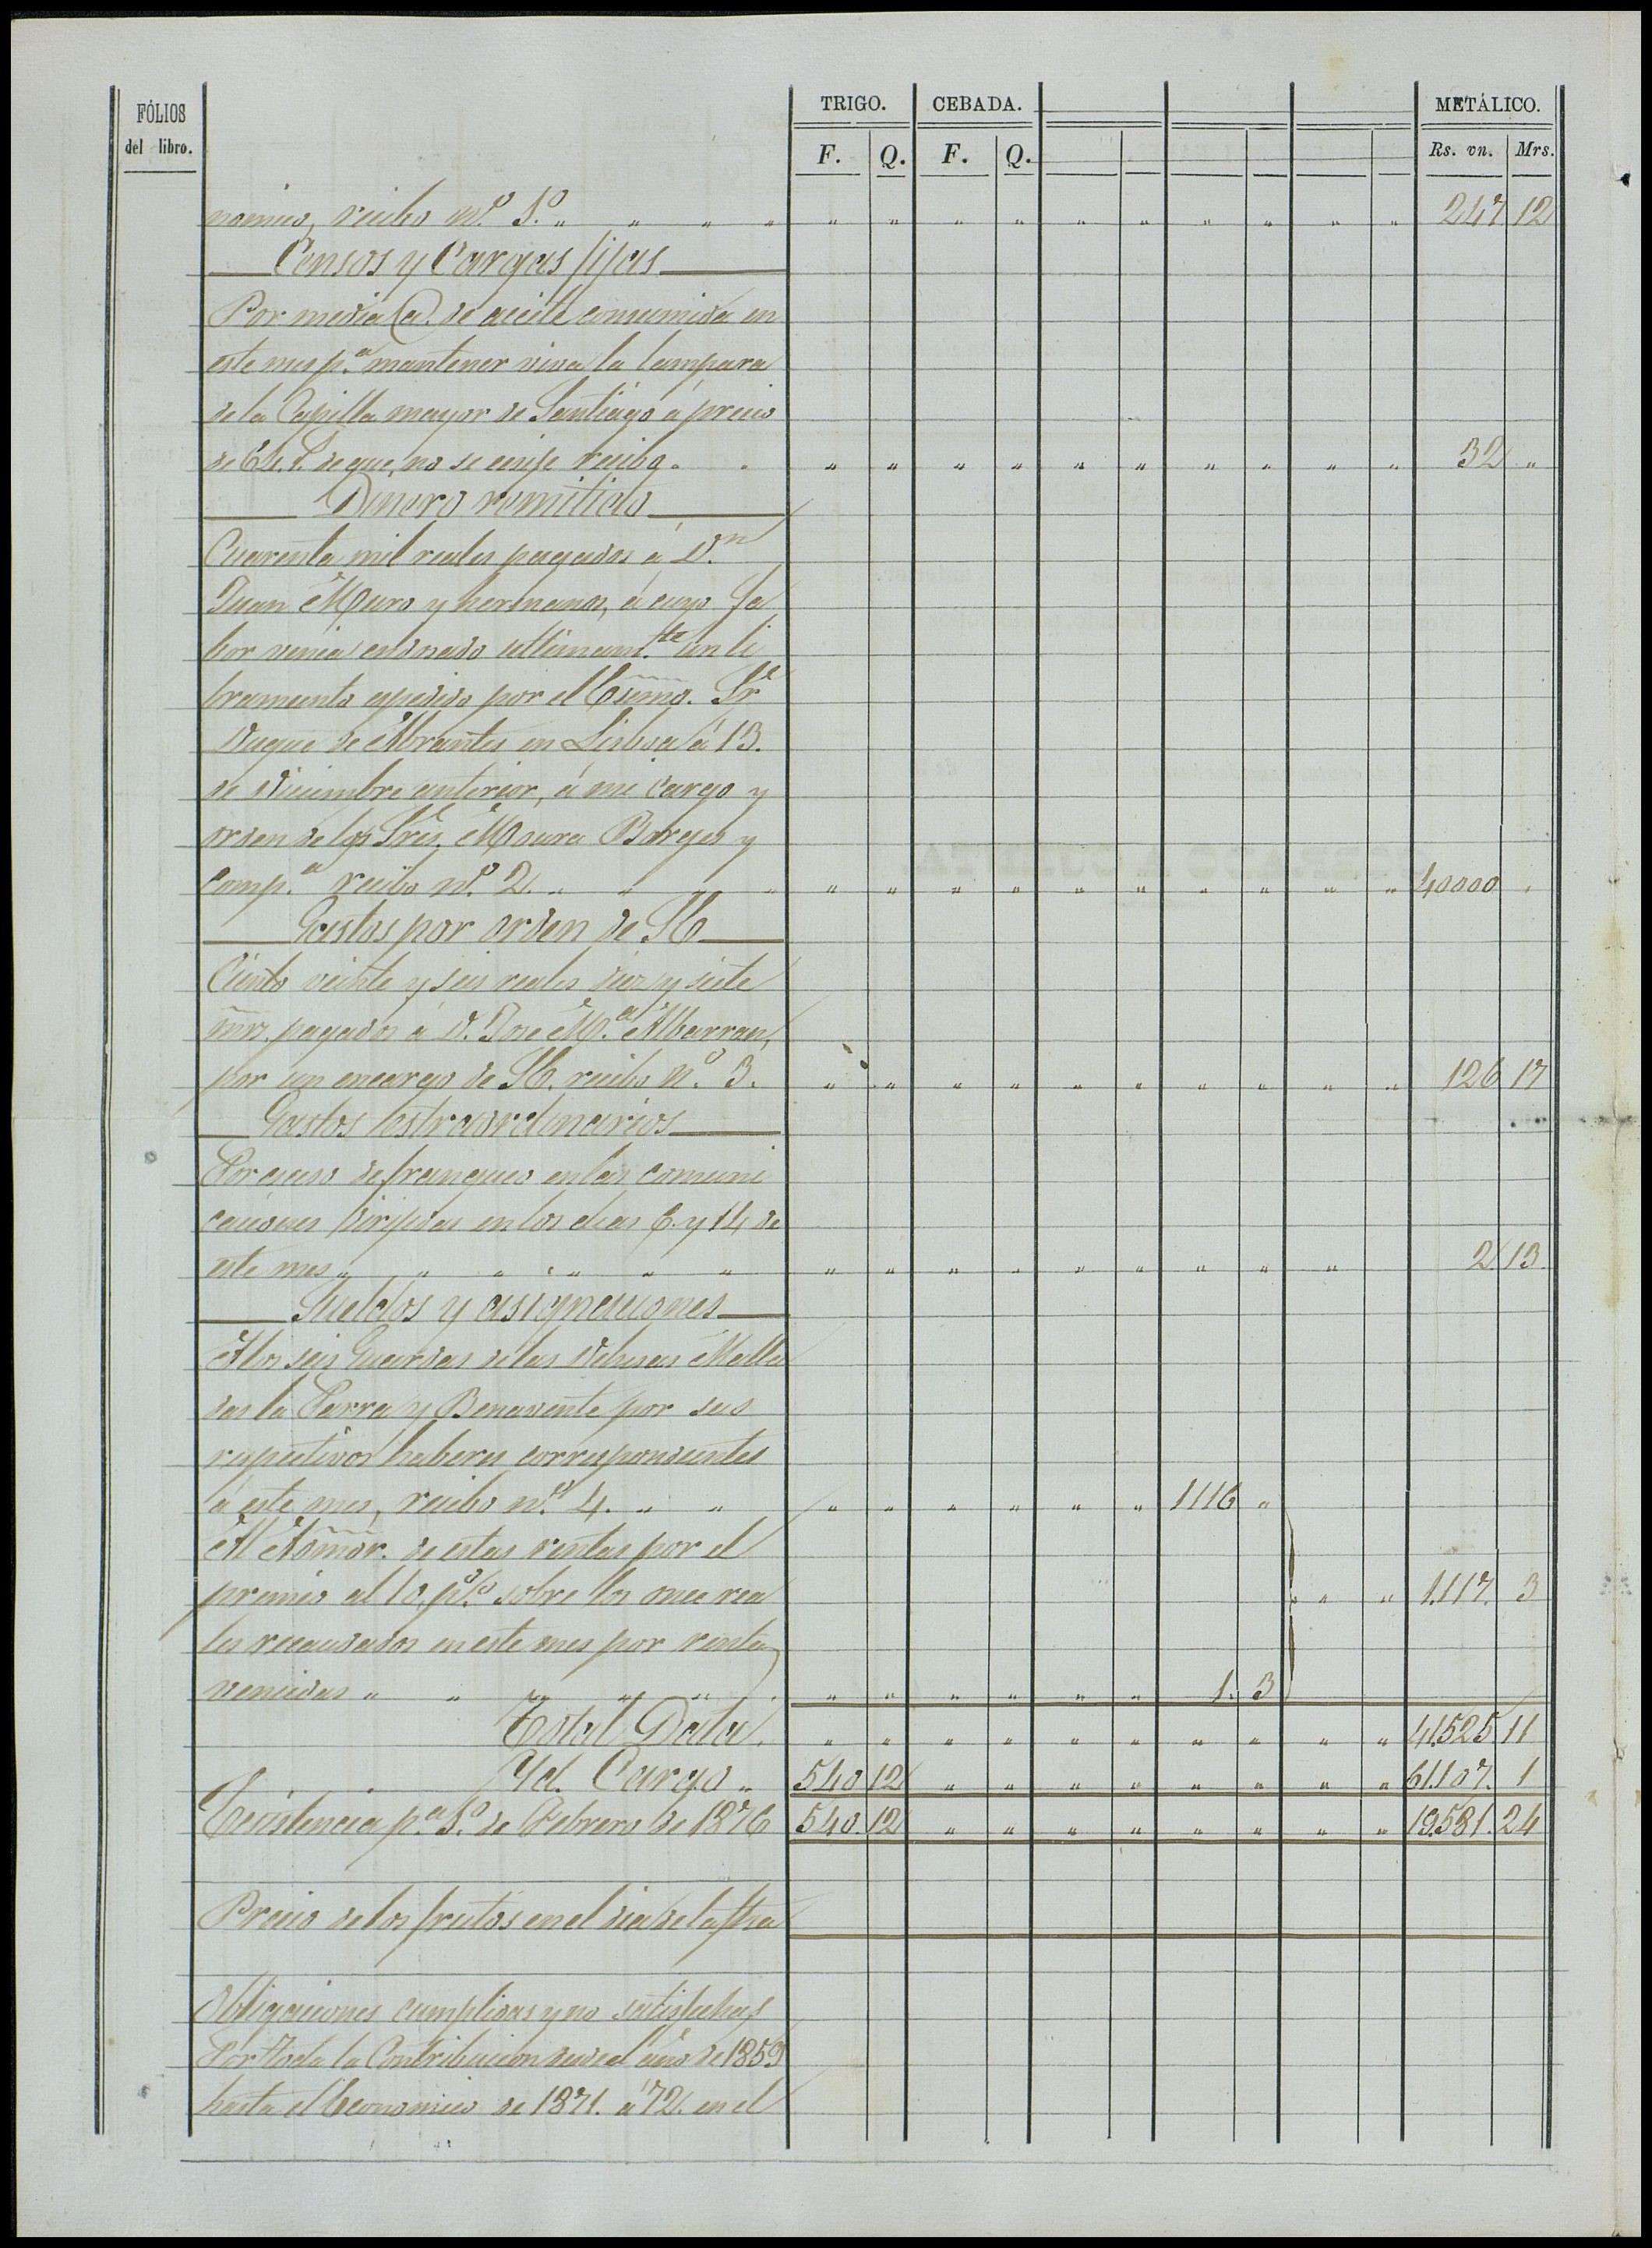 FÓLIOS del libro. TRIGO. CEBADA. METÁLICO.
F. Q. F. Q. Rs. vn. Mrs.
nomico, recibo n.º 1.º " " " " " " " " " " " " " " 247 12
Censos y Cargas fijas
Por media @. de aceite consumida en
este mes p.ª mantener viva la lampara
de la Capilla mayor de Santiago á precio
de 64. r. de que, no se exije recibo. " " " " " " " " " " " 32 "
Dinero remitido
Cuarenta mil reales pagados á D.n
Juan Muro y hermanos, á cuyo fa
bor venia endosado ultimam.te un li
bramiento espedido por el Esmo. Sr
Duque de Abrantes en Lisboa á 13.
de Diciembre anterior, á mi cargo y
orden de los Sres. Moura Borges y
comp.ª recibo n.º 2. " " " " " " " " " " " " " " 40000 "
Gastos por orden de SE
Ciento veinte y seis reales diez y siete
mrs. pagados á D. Jose M.ª Albarran,
por un encargo de SE. recibo n.º 3. " " " " " " " " " " 126 17
Gastos estraordinarios
Por esceso de franqueo en las comuni
caciones dirijidas en los dias 6. y 14 de
este mes " " " " " " " " " " " " " " " 2. 13.
Sueldos y asignaciones
A los seis Guardas de las Dehesas Malla
das la Parra y Benavente por sus
respectivos haberes correspondientes
á este mes, recibo n.º 4. " " " " " " " " 1116 "
Al Admor. de estas rentas por el
premio al 10. p% sobre los once rea " " " 1.117. 3
les recaudados en este mes por rentas
vencidas " " " " " " " " " " " " 1. 3
Total Data. " " " " " " " " " " 41.525 11
Yd. Cargo " 540 12 " " " " " " " " 61.107. 1
Ecsistencia p.ª 1.º de Febrero de 1876 540. 12 " " " " " " " " 19.581. 24
Precio de los frutos en el dia de la fha
Obligaciones cumplidas y no satisfechas
Por toda la Contribucion desde el año de 1859
hasta el Economico de 1871. á 72. en el